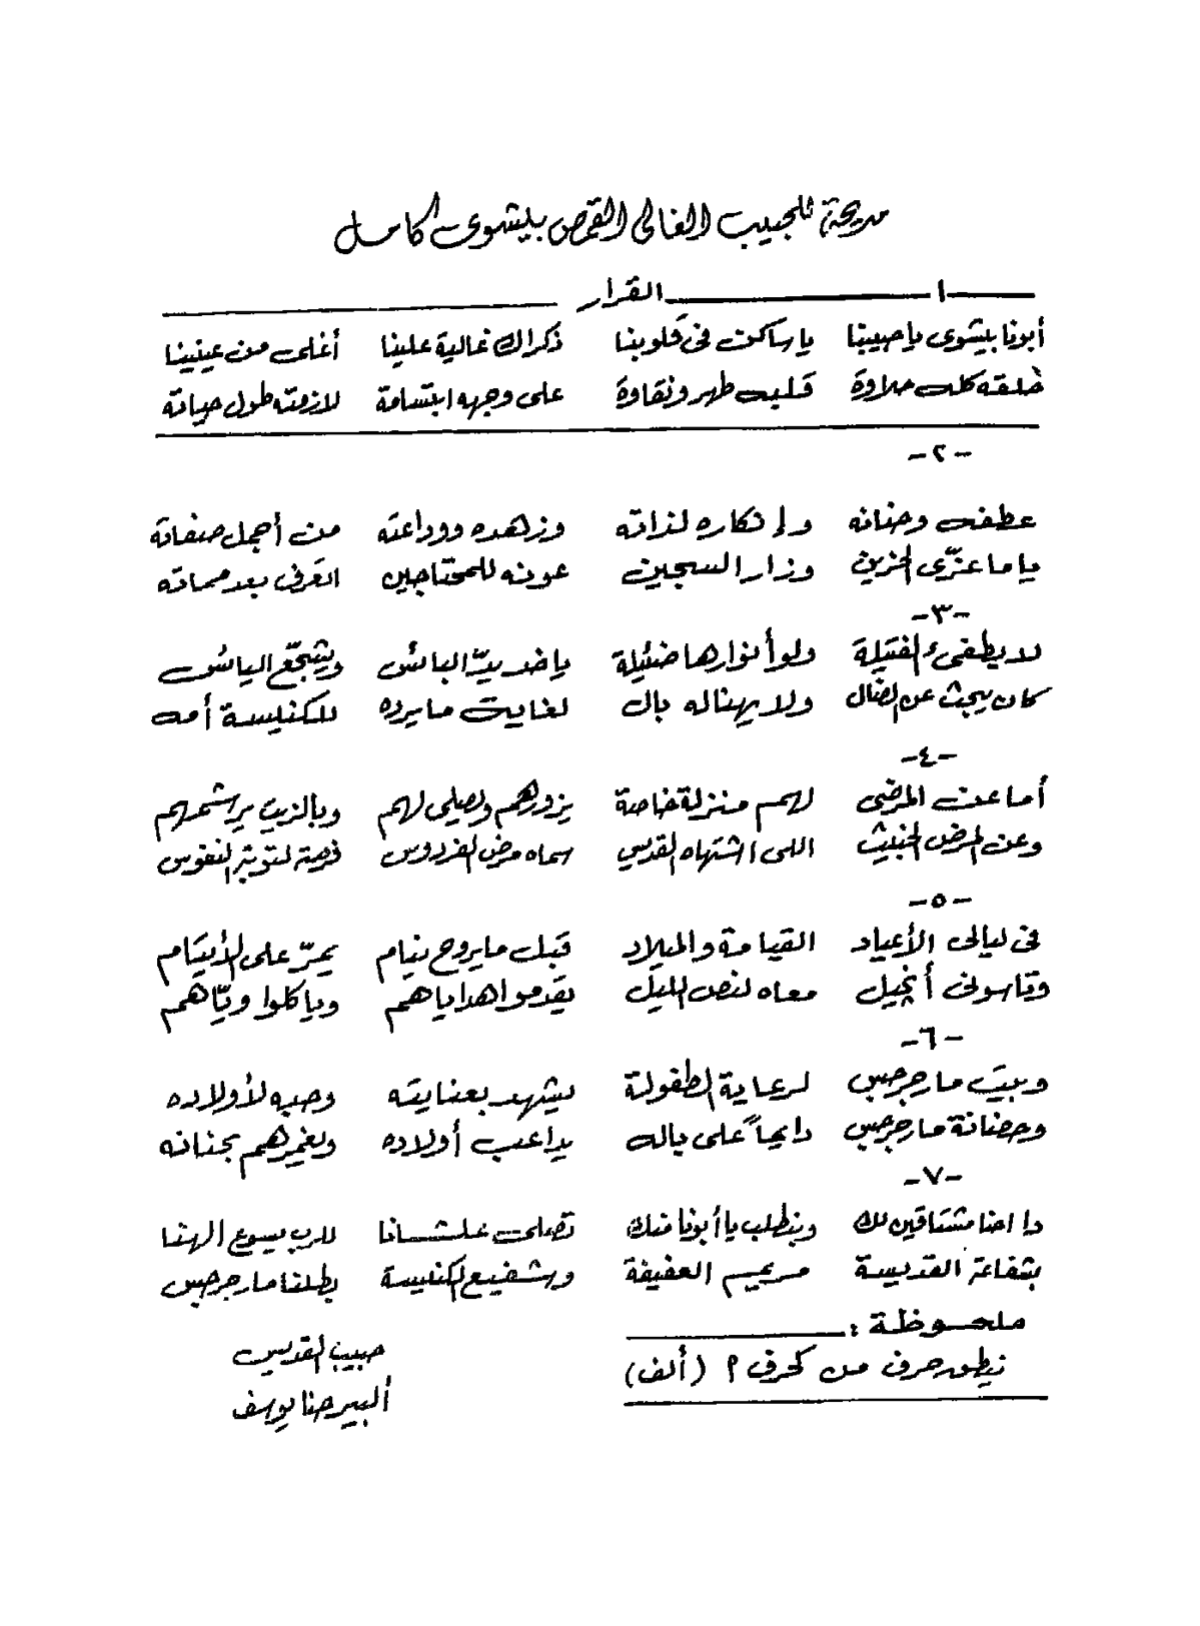 مديحة للحبيب الغالى القمص بيشوى كامل
-١- القرار
أبونا بيشوى يا حبيبنا يا ساكن فى قلوبنا ذكراك غالية علينا أغلى من عينينا
خلقته كلها حلاوة قلبه طهر ونقاوة على وجهه ابتسامة لازمته طول حياته
-٢-
عطفه وحنانه وإنكاره لذاته وزهده ووداعته من أجمل صفاته
ياما عزّى الحزين وزار السجين عونه للمحتاجين اتعرف بعد مماته
-٣-
لا يطفئ الفتيلة ولو أنوارها ضئيلة ياخد بيدّ البائس ويشجّع اليائس
كان يبحث عن الضال ولا يهناله بال لغايت ما يرده للكنيسة أمه
-٤-
أما عن المرضى لهم منزلة خاصة يزورهم ويصلى لهم وبالزيت يرشمهم
وعن المرض الخبيث اللى اشتهاه القديس سماه مرض الفردوس فرصة لتوبة النفوس
-٥-
فى ليالى الأعياد القيامة والميلاد قبل ما يروح ينام يمرّ على الأيتام
وتاسونى أنجيل معاه لنص الليل يقدموا هداياهم وياكلوا ويّاهم
-٦-
وبيت مارجرجس لرعاية الطفولة يشهد بعنايته وحبه لأولاده
وحضانة مارجرجس دايماً على باله يداعب أولاده ويغمرهم بحنانه
-٧-
دا احنا مشتاقين لك وبنطلب يا أبونا منك تصلى علشانا للرب يسوع الهنا
بشفاعة القديسة مريم العفيفة وشفيع الكنيسة بطلنا مارجرجس
ملحوظة :
نطق حرف من كحرف م (ألف)
حبيب القديس
ألبير حنا يوسف